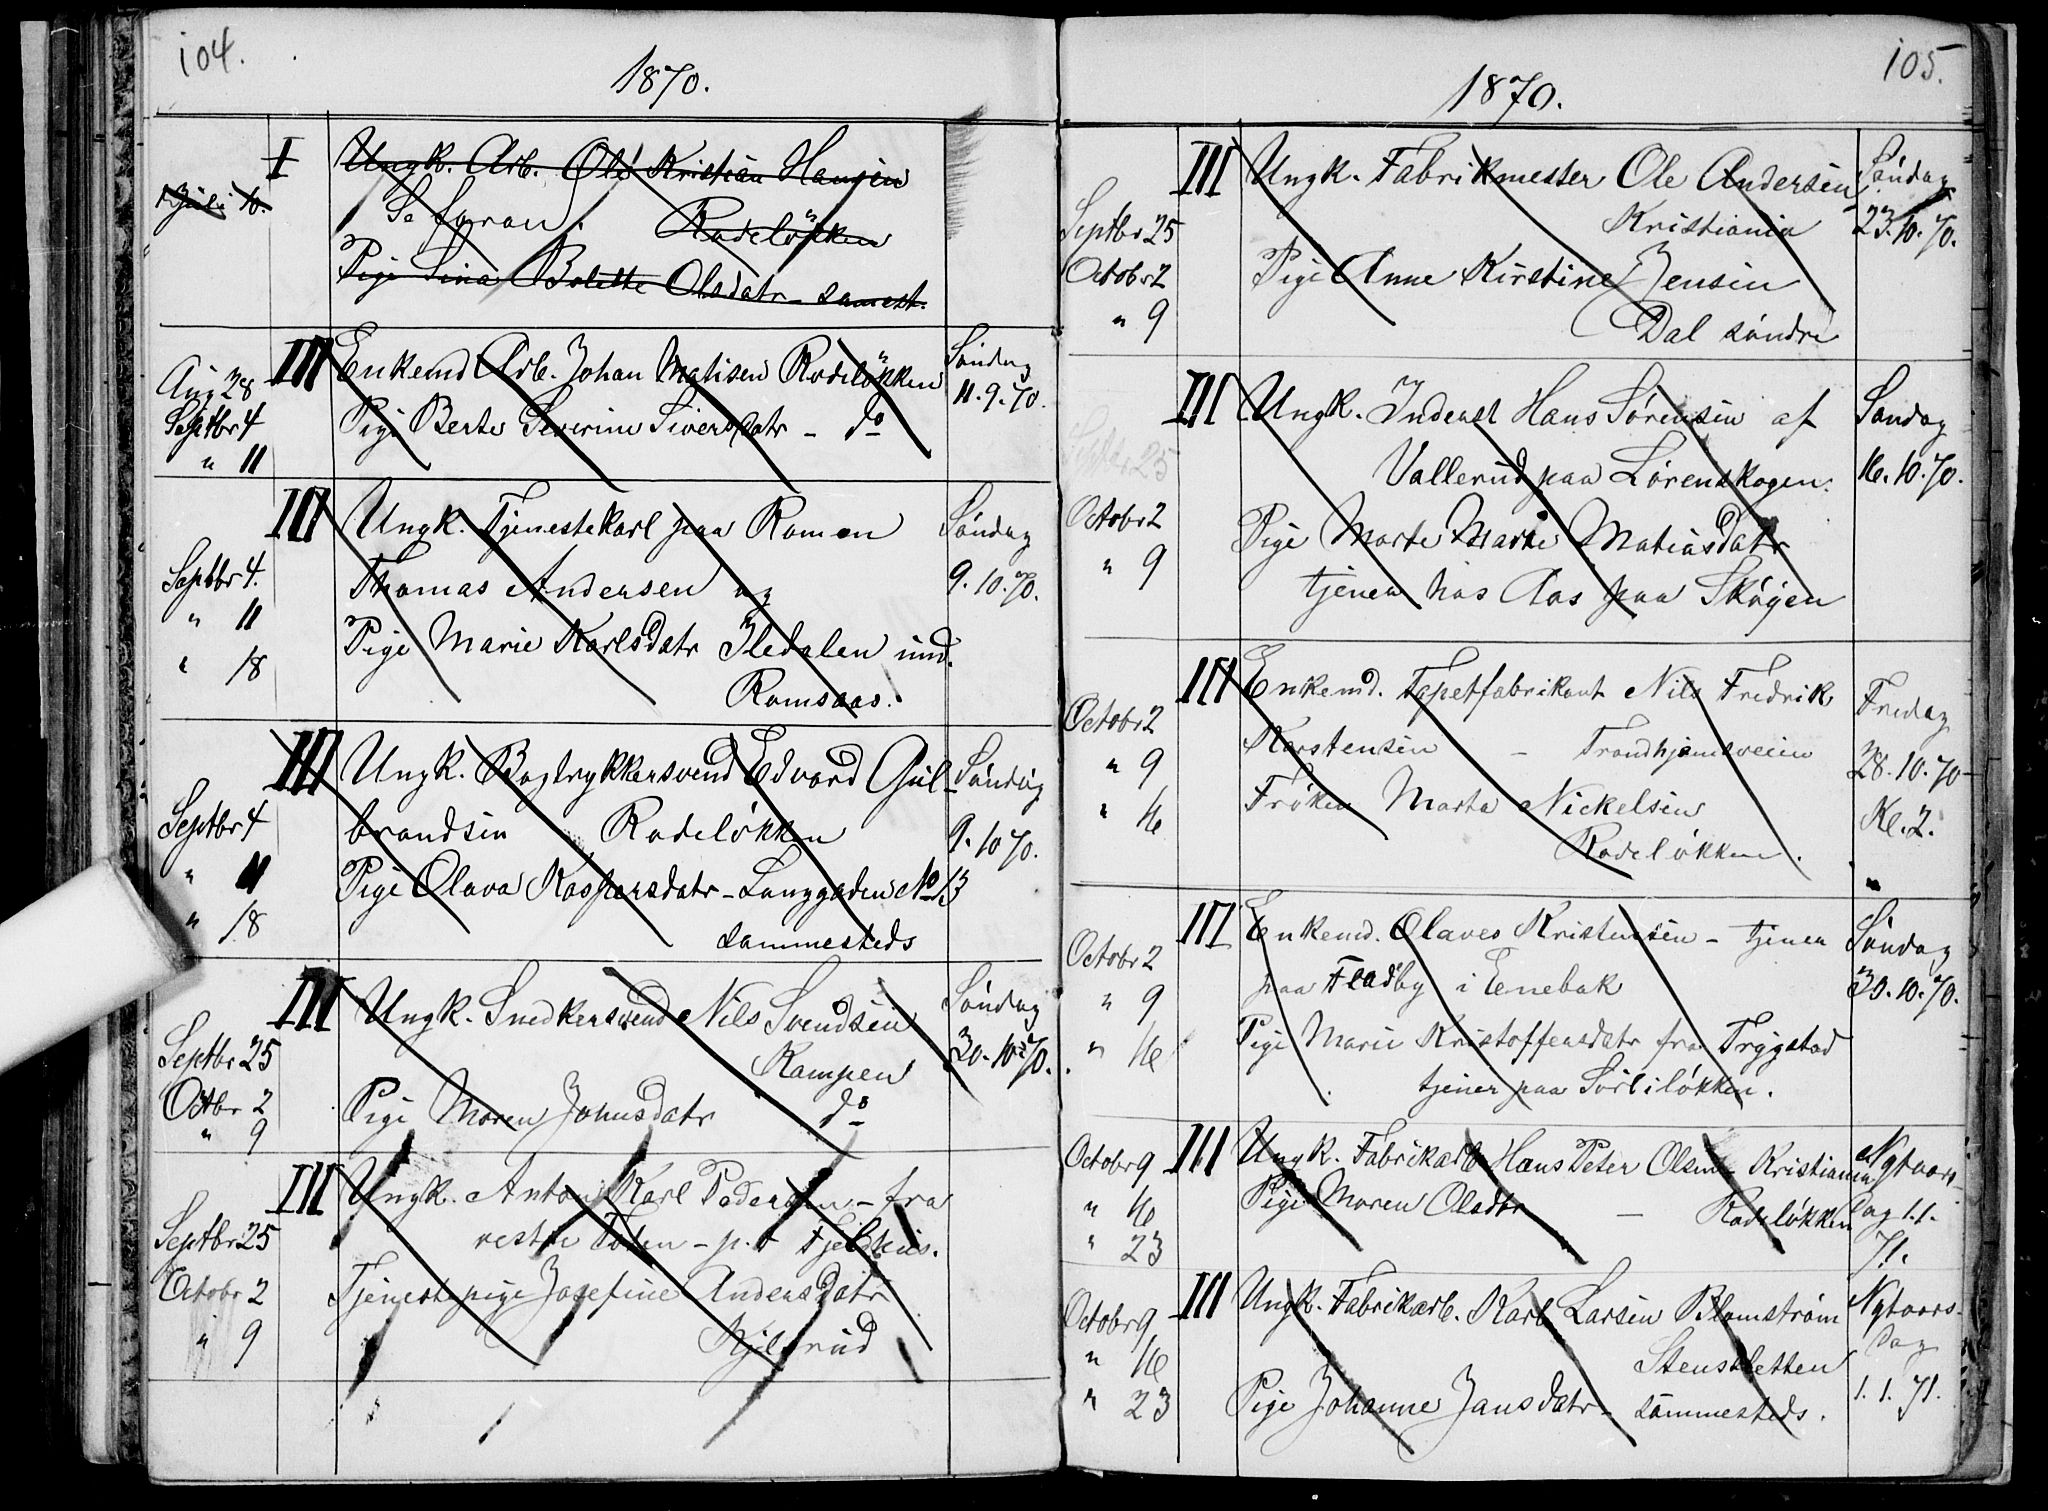 104.
1870.
I
Juli 10.
Ungk. Arb. Ole Kristian Hansen
Safgran. Rodeløkken
Pige Lina Bolette Olsdatr - samest.
III
Aug 28
Septbr 4
" 11
Enkemd Arb. Johan Matisen Rodeløkken
Pige Berte Severine Siversdatr - do
Søndag
11.9.70.
III
Septbr 4.
" 11
" 18
Ungk. Tjenestekarl paa Romen
Thomas Andersen og
Pige Marie Karlsdatr Iledalen und.
Romsaas.
Søndag
9.10.70.
III
Septbr 4
" 11
" 18
Ungk. Bogtrykkersvend Edvard Gul-
brandsen Rodeløkken
Pige Olava Kaspersdatr - Langgaden No 13
sammesteds
Søndag
9.10 70.
III
Septbr 25
Octbr 2
" 9
Ungk. Snedkersvend Nils Svendsen
Kampen
Pige Maren Johnsdatr do
Søndag
30.10.70.
III
Septbr 25
Octobr 2
" 9
Ungk. Anton Karl Pedersen - fra
vestre Toten - p.t.
Tjenestepige Josefine Andersdatr
Kjilsrud
105.
1870.
III
Septbr 25
Octobr 2
" 9
Ungk. Fabrikmester Ole Andersen
Kristiania
Pige Anne Kirstine Jensen
Dal søndre
Søndag
23.10.70.
III
Septbr 25
Octobr 2
" 9
Ungk. Inderst Hans Sørensen af
Vallerud paa Lørenskogen.
Pige Marte Marie Matiasdatr
tjener hos Aas paa Skøyen
Søndag
16.10.70.
III
Octobr 2
" 9
" 16
Enkemd. Tapetfabrikant Nils Fredrik
Karstensen - Trondhjemsveien
Frøken Marta Nickelsen
Rodeløkken.
Fredag
28.10.70
Kl. 2.
III
Octobr 2
" 9
" 16
Enkemd. Olaves Kristensen - tjener
paa Fladby i Enebak
Pige Marie Kristoffersdatr fra Trygstad
tjener paa Sorliløkken.
Søndag
30.10.70.
III
Octobr 9
" 16
" 23
Ungk. Fabrikarb Hans Peter Olsen Kristiania
Pige Maren Olsdtr - Rodeløkken
Nytaars-
dag 1.1.
71.
III
Octobr 9
" 16
" 23
Ungk. Fabrikarb. Karl Larsen Blomstrøm
Stensletten
Pige Johanne Jansdatr - sammesteds.
Nytaars-
dag
1.1.71.